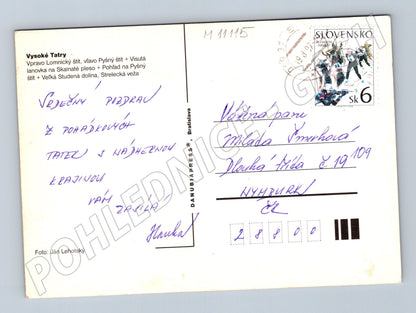 M 11115
Vysoké Tatry
Vpravo Lomnický štít, vľavo Pyšný štít • Visutá
lanovka na Skalnaté pleso • Pohľad na Pyšný
štít • Veľká Studená dolina, Strelecká veža
SLOVENSKO
Sk 6
SRDEČNÝ POZDRAV
Z POHÁDKOVÝCH
TATER S NÁDHERNOU
KRAJINOU
VÁM
ZASÍLÁ
Hanka
Vážená paní
Mláda Šmrhová
Dlouhá třída č. 19/109
NYMBURK
ČR
28800
DANUBIAPRESS®, Bratislava
Foto: Ján Lehotský
POHLEDNICE